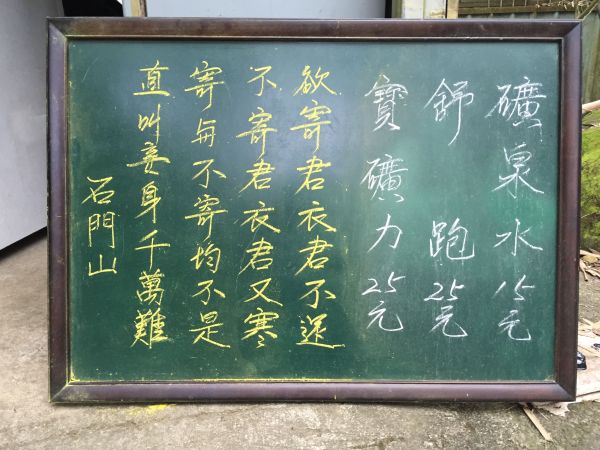 礦泉水15元
舒跑25元
寶礦力25元
欲寄君衣君不還
不寄君衣君又寒
寄與不寄均不是
直叫妾身千萬難
石門山